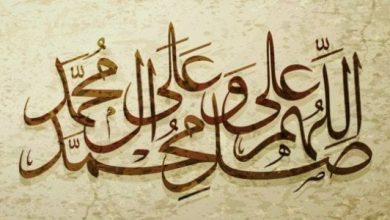 اللَّهُمَّ صَلِّ عَلَى مُحَمَّدٍ وَ عَلَى آلِ مُحَمَّدٍ